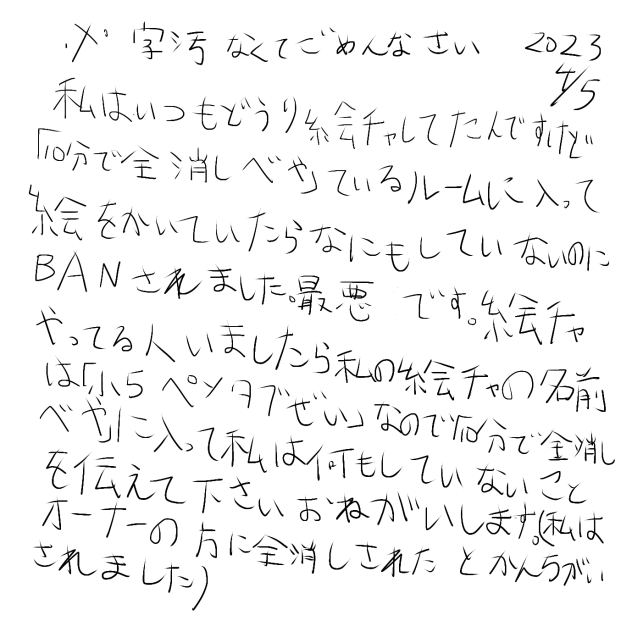 ※ 字汚なくてごめんなさい 2023
4/5
私はいつもどうり絵チャしてたんですけど
「10分で全消しべや」ているルームに入って
絵をかいていたらなにもしていないのに
BANされました。最悪です。絵チャ
やってる人いましたら私の絵チャの名前
は「小5ペンタブぜい」なので「10分で全消し
べや」に入って私は何もしていないこと
を伝えて下さいおねがいします。(私は
オーナーの方に全消しされたとかんちがい
されました)